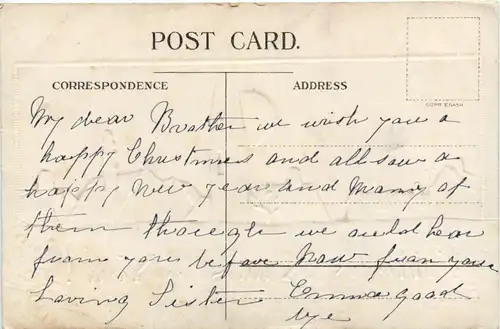 POST CARD.
CORRESPONDENCE
ADDRESS
My dear Brother we wish you a
happy Christmas and allsow a
happy New year and Many of
them thoough we ould hear
from you before Now from your
Loving Sister Emma good
bye